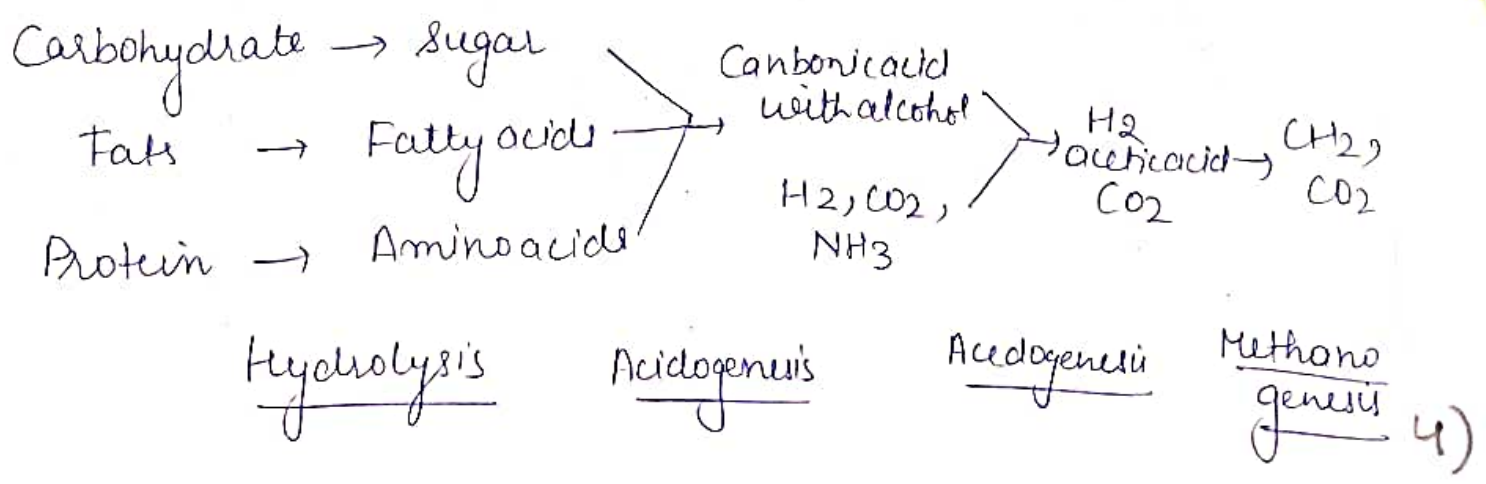 Carbohydrate → Sugar
Fats → Fatty acids
Protein → Aminoacids
Canbonicacid
with alcohol
H2, CO2,
NH3
H2
aceticacid →
CO2
CH2,
CO2
Hydrolysis
Acidogenesis
Acedogenesis
Methano
genesis
4)